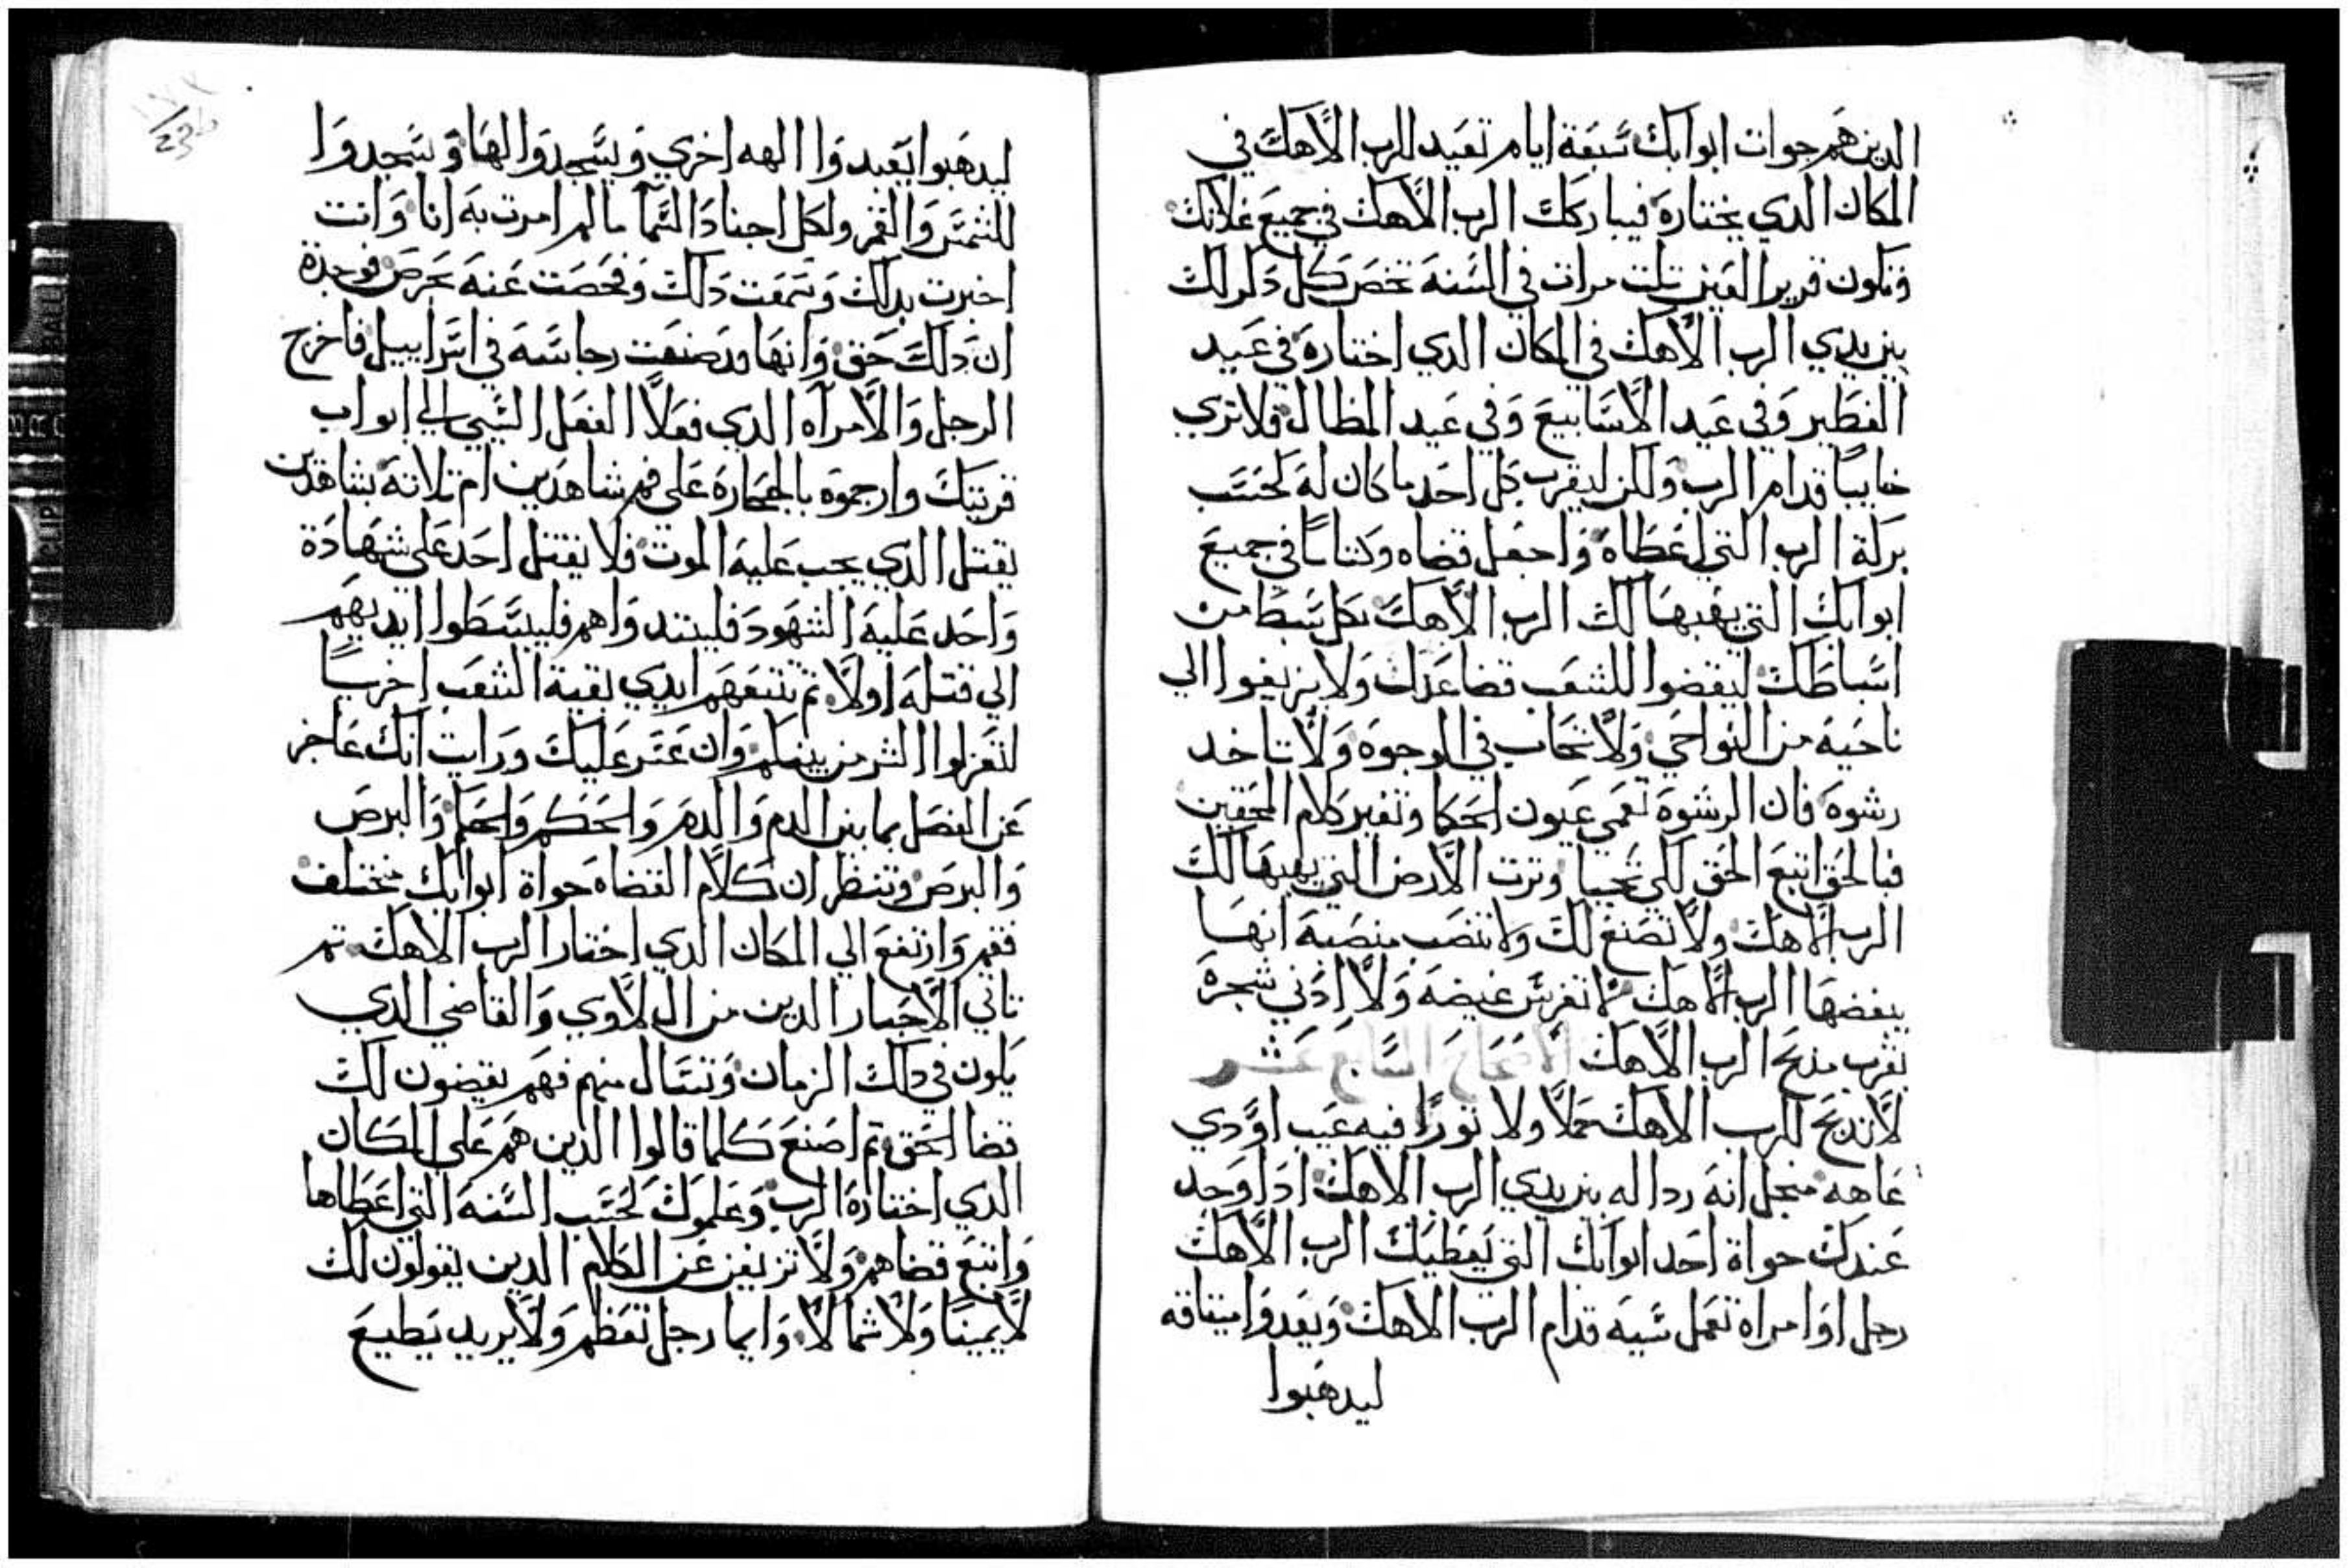 الدين هم جوات ابوابك سبعة ايام تعيد للرب الاهك في
المكان الدي يختاره فيباركك الرب الاهك في جميع غلاتك
وتكون قرير العين تلت مرات في السنه تحضر كل دكر لك
بين يدي الرب الاهك في المكان الدي اختاره في عيد
الفطير وفي عيد الاسابيع وفي عيد المظال فلا تري
خايبًا قدام الرب ولكن ليقرب كل احد ما كان له كحسب
بركة الرب التي اعطاه واجعل قضاه وكتابًا في جميع
ابوابك التي يهبها لك الرب الاهك بكل سبط من
اسباطك ليقضوا للشعب قضا عدل ولا يزيغوا الي
ناحية من النواحي ولا تحاب في الوجوه ولا تاخد
رشوه فان الرشوة تعمي عيون الحكما وتغير كلام المحقين
فبالحق اتبع الحق لكي تحيا وترت الارض التي يهبها لك
الرب الاهك ولا تصنع لك ولا تنصب منصبة انها
يبغضها الرب الاهك لا تغرس غيضه ولا ادني شجرة
بقرب مدبح الرب الاهك الاصحاح السابع عشر
لا تدبح للرب الاهك حملًا ولا تورًا فيه عيب او دي
عاهه منجل انه ردا له بين يدي الرب الاهك ادا وجد
عندك جواة احد ابوابك التي يعطيك الرب الاهك
رجل او امراه تعمل سيه قدام الرب الاهك ويعدوا ميتاقه
ليدهبوا
234
ليدهبوا يعبدوا الهه اخري ويسجدوا لها ويسجدوا
للشمس والقمر ولكل اجناد السما ما لم امرت به انا وانت
اخبرت بدلك وسمعت دلك وفحصت عنه بحرص فوجدة
ان دلك حق وانها قد صنعت رجاسه في اسراييل فاخرج
الرجل والامراه الدي فعلا الفعل السي الي ابواب
قريتك وارجموه بالحجاره علي فم شاهدين ام تلاتة شاهدين
يقتل الدي يجب عليه الموت فلا يقتل احد علي شهادة
واحد عليه الشهود فليبتدوا هم فليبسطوا ايديهم
الي قتله اولا تم تتبعهم ايدي بقية الشعب اخريًا
لتعزلوا الشر من بينكم وان عسر عليك ورايت انك عاجز
عن الفصل بما بين الدم والدم والحكم والحكم والبرص
والبرص وتنظر ان كلام القضاه جواة ابوابك مختلف
فقم وارتفع الي المكان الدي اختار الرب الاهك تم
تاتي الاحبار الدين من ال لاوي والقاضي الدي
يكون في دلك الزمان وتسال منهم فهم يقضون لك
قضا الحق تم اصنع كلما قالوا الدين هم علي المكان
الدي اختاره الرب وعلموك كحسب السنه التي اعطاها
واتبع قضاهم ولا تزيغن عن الكلام الدين يقولون لك
لا يمينًا ولا شمالا وايما رجل تعظم ولا يريد يطيع